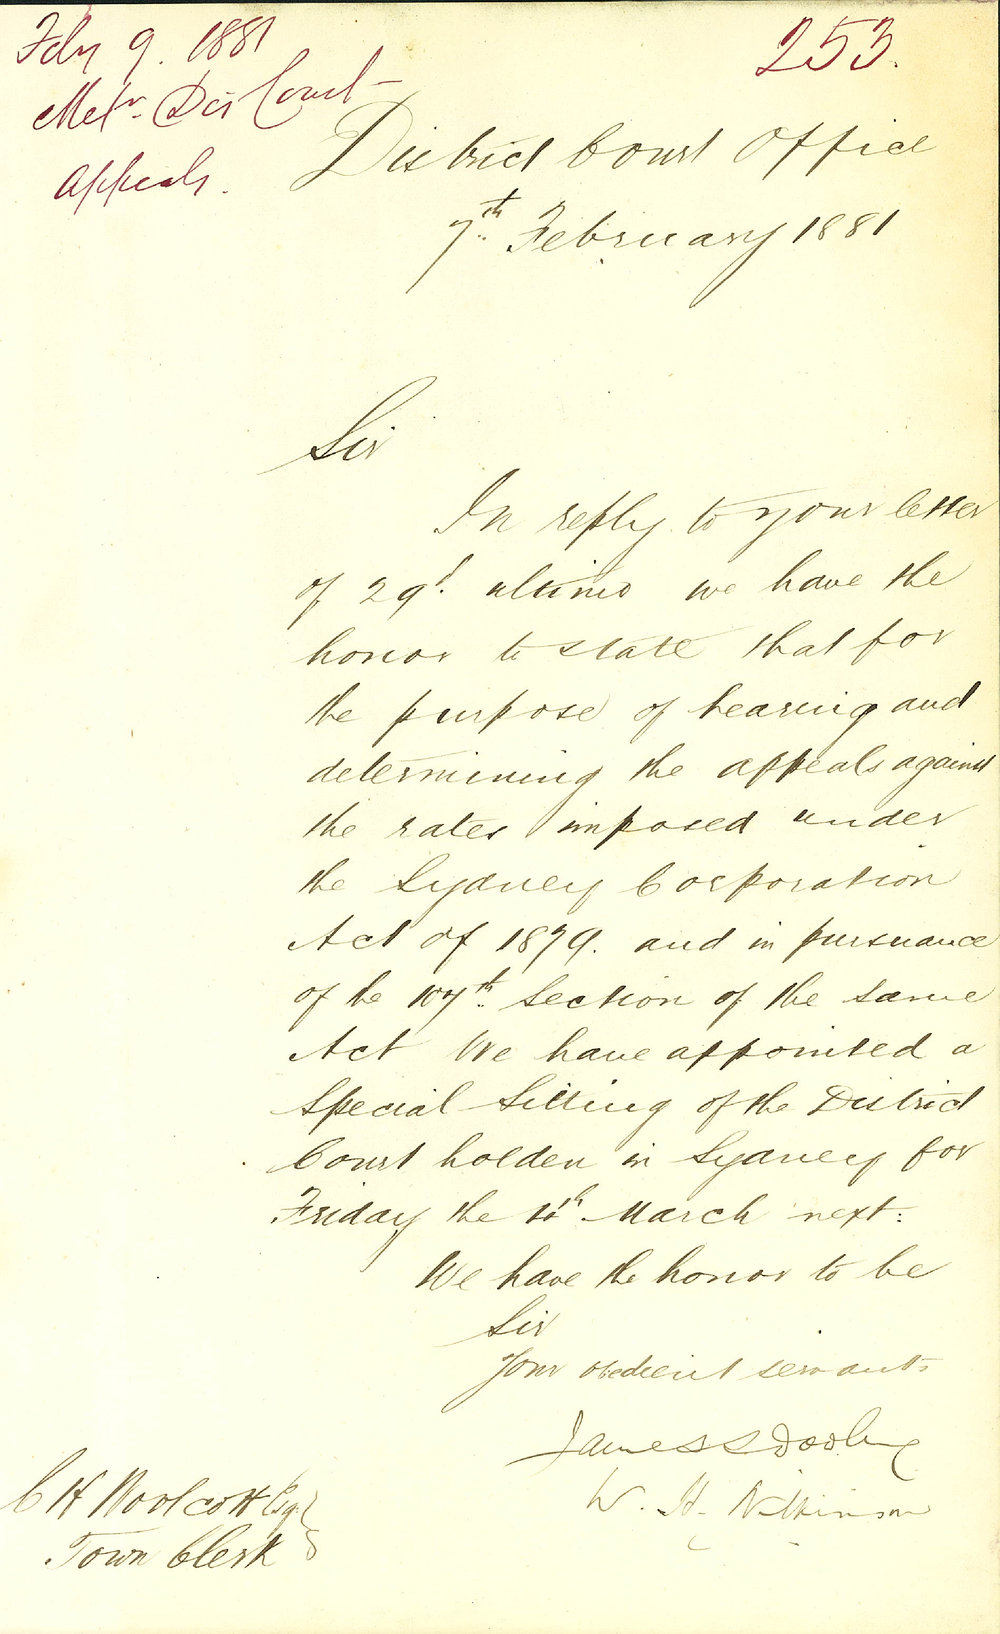 Feby 9. 1881
Metr. Dis Court
Appeals.
253.
District Court Office
7th. February 1881
Sir
In reply to your letter
of 29th. ultimo we have the
honor to state that for
the purpose of hearing and
determining the appeals against
the rates imposed under
the Sydney Corporation
Act of 1879. and in pursuance
of the 107th. Section of the same
Act We have appointed a
Special Sitting of the District
Court holden in Sydney for
Friday the March next.
We have the honor to be
Sir
Your obedient servants
James S Dooley
W. H. Wilkinson
C H Woolcott Esq
Town Clerk